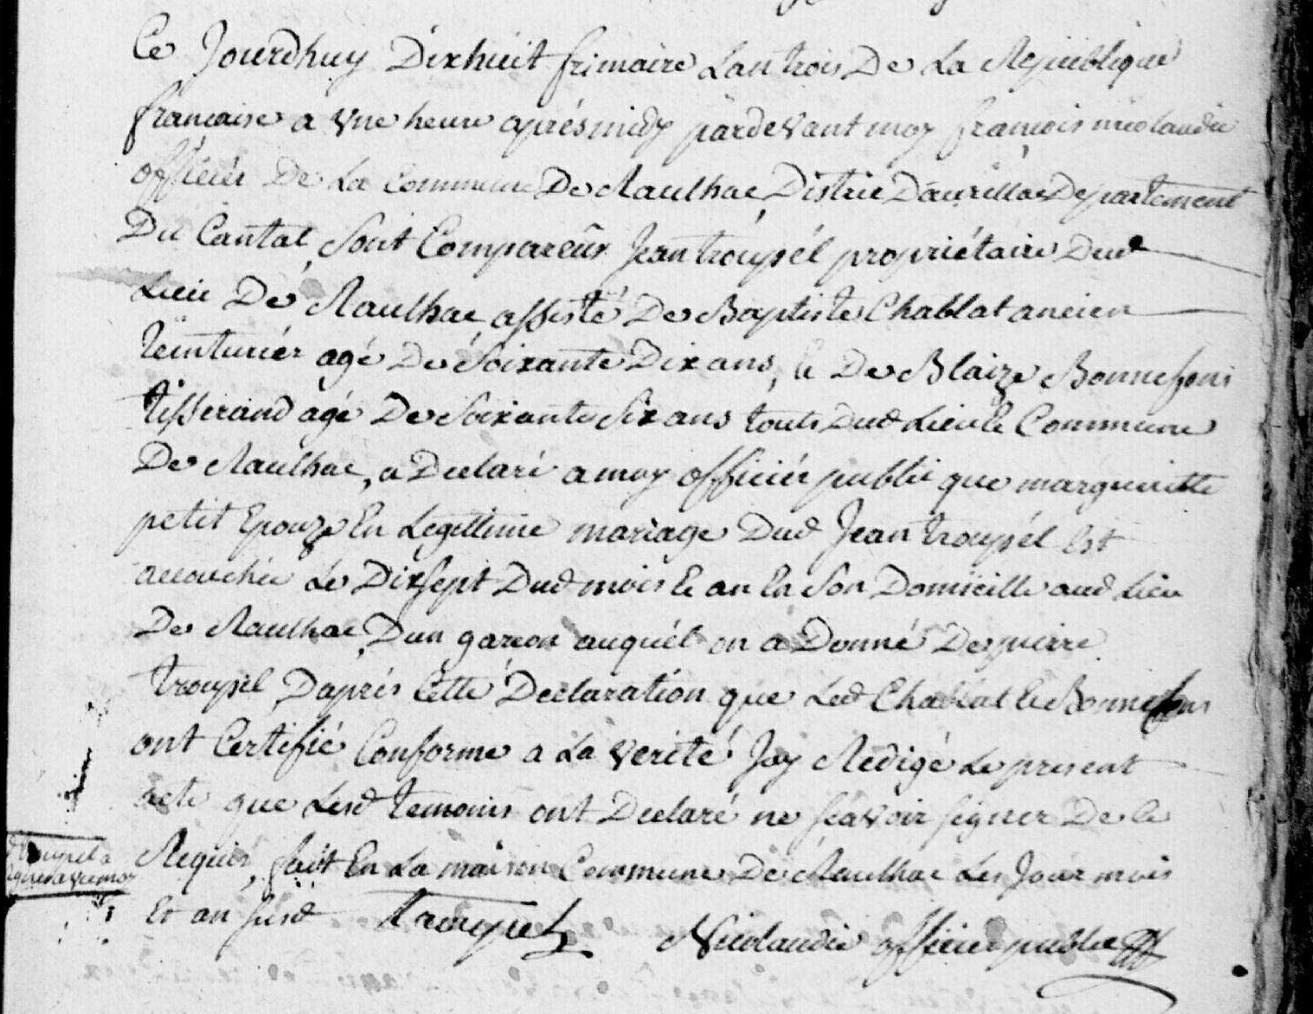 Ce Jourdhuy Dixhuit frimaire Lan trois De La Republique
francaise a vne heure aprésmidy pardevant moy francois nicolaudie
officiér De La Commune De Raulhac, District Daurillac Departement
Du Cantal, Sont Comparéus Jean troupél propriétaire Dud
Lieu De Raulhac assisté De Baptiste Chablat ancien
teinturiér agé De Soixante Dix ans, Et De Blaize Bonnefons
tisserand agé De Soixante Six ans touts Dud Lieu Et Commune
De Raulhac, a Declaré a moy officiér public que margueritte
petit Epouze En Legittime mariage Dud Jean troupél Est
accouchée Le Dixsept Dud mois Et an En Son Domicille aud Lieu
De Raulhac, Dun garcon auquél on a Donné De pierre
troupel, Daprés Cette Declaration que Led Chablat Et Bonnefons
ont Certifié Conforme a La verité Jay Redigé Le present
acte que Lesd temoins ont Declaré ne scavoir signer De Ce
Requis, fait En La maison Commune De Raulhac Les Jour mois
Et an susd troupel Nicolaudie officier public
troupel a
signé avec moy